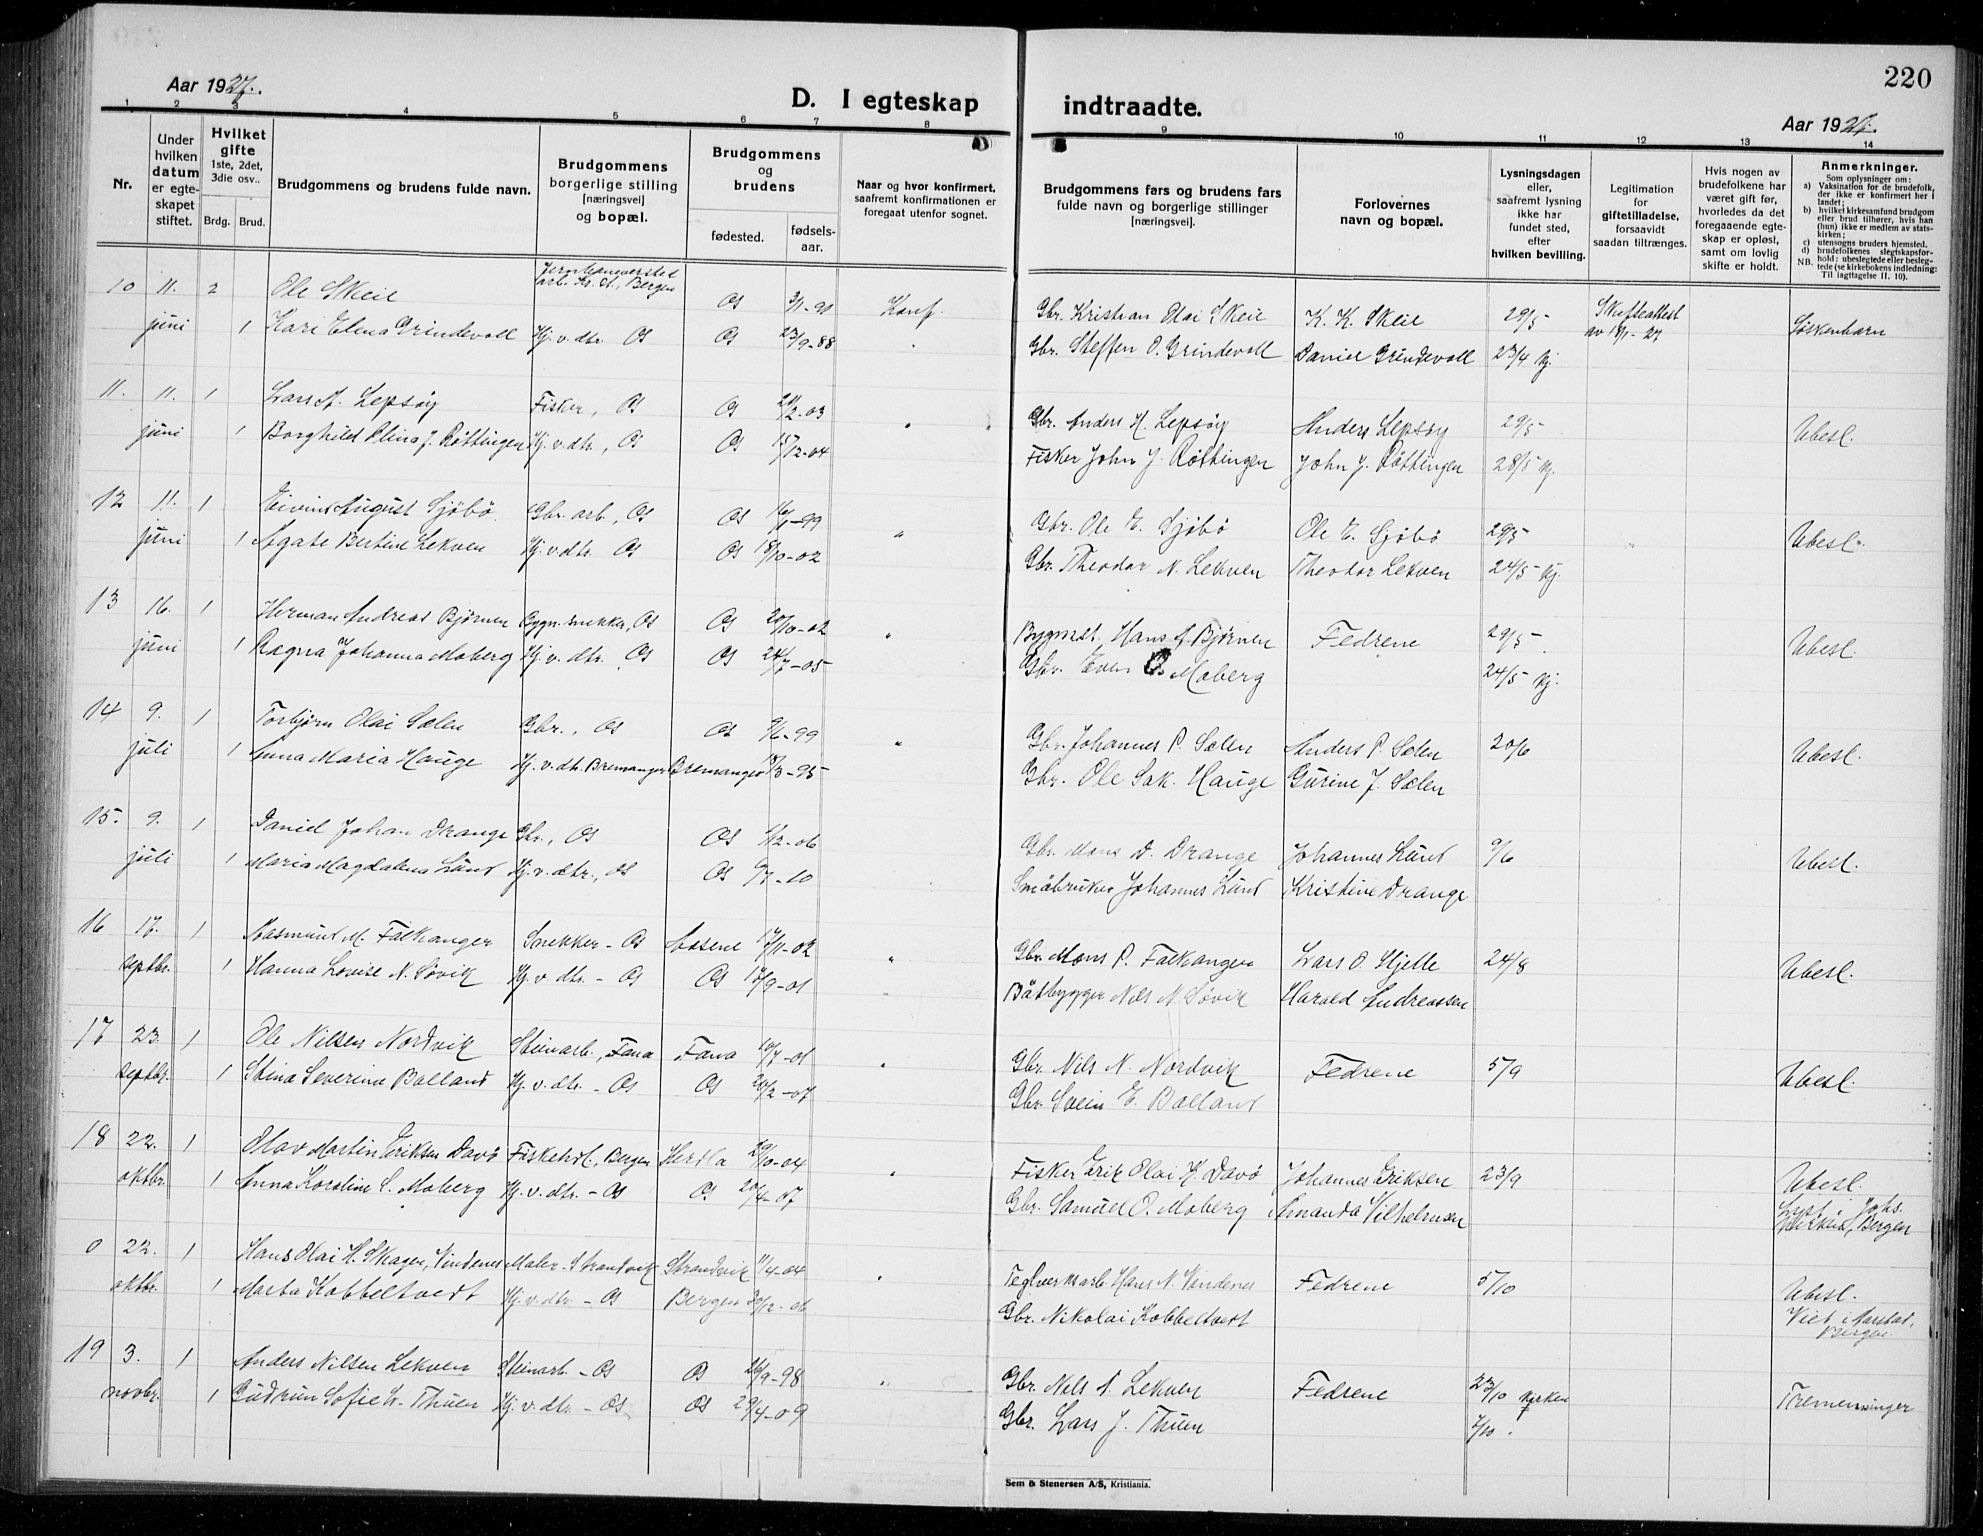 220
Aar 1927.
D. I egteskap indtraadte.
Aar 1927.
1 2 3 4 5 6 7 8 9 10 11 12 13 14
Nr.
Under hvilken datum er egteskapet stiftet.
Hvilket gifte 1ste, 2det, 3die osv..
Brdg. Brud.
Brudgommens og brudens fulde navn.
Brudgommens borgerlige stilling [næringsvei] og bopæl.
Brudgommens og brudens
fødested. fødsels-aar.
Naar og hvor konfirmert, saafremt konfirmationen er foregaat utenfor sognet.
Brudgommens fars og brudens fars fulde navn og borgerlige stillinger [næringsvei].
Forlovernes navn og bopæl.
Lysningsdagen eller, saafremt lysning ikke har fundet sted, efter hvilken bevilling.
Legitimation for giftetilladelse, forsaavidt saadan tiltrænges.
Hvis nogen av brudefolkene har været gift før, hvorledes da det foregaaende egteskap er opløst, samt om lovlig skifte er holdt.
Anmerkninger.
Som oplysninger om:
a) Vaksination for de brudefolk, der ikke er konfirmert her i landet;
b) hvilket kirkesamfund brudgom eller brud tilhører, hvis han (hun) ikke er medlem av statskirken;
c) utensogns bruders hjemsted.
d) brudefolkenes slegtskapsforhold: ubeslegtede eller beslegtede (se kirkebokens indledning:
NB. Til iagttagelse II. 10).
10 11. 2 Ole Skeie arb. Os st., Bergen Os 3/1-90 Konf. Gbr. Kristian Olai Skeie K. K. Skeie 29/5 Skifteattest
juni 1 Kari Elena Grindevoll Hj. v. dtr. Os Os 23/9-88 Gbr. Steffen O. Grindevoll Daniel Grindevoll 23/4 kj. av 18/1-27 Søskenbarn
11. 11. 1 Lars A. Lepsøy Fisker, Os Os 20/2-03 " Gbr. Anders H. Lepsøy Anders Lepsøy 29/5
juni 1 Borghild Olina J. Røttingen Hj. v. dtr., Os Os 15/12-04 Fisker John J. Røttingen John J. Røttingen 28/5 kj. Ubesl.
12 11. 1 Eivind August Sjøbø Gbr. arb., Os Os 16/1-99 " Gbr. Ole E. Sjøbø Ole E. Sjøbø 29/5
juni 1 Agate Bertine Lekven Hj. v. dtr. Os Os 18/10-02 Gbr. Theodor N. Lekven Theodor Lekven 24/5 kj. Ubesl.
13 16. 1 Herman Andreas Bjørnen Bygn. snekker, Os Os 20/10-02 " Bygmst. Hans A. Bjørnen Fedrene 29/5
juni 1 Ragna Johanna Moberg Hj. v. dtr. Os Os 24/7-05 Gbr. Even O. Moberg 24/5 kj. Ubesl.
14 9. 1 Torbjørn Olai Sælen Gbr., Os Os 9/6-99 " Gbr. Johannes P. Sælen Anders P. Sælen 20/6
juli 1 Anna Maria Hauge Hj. v. dtr. Bremanger Bremanger 18/3-95 Gbr. Ole Sak. Hauge Gurine J. Sælen Ubesl.
15. 9. 1 Daniel Johan Drange Gbr., Os Os 1/12-06 Gbr. Mons D. Drange Johannes Lund 9/6
juli 1 Maria Magdalena Lund Hj. v. dtr., Os Os 6/7-10 Småbruker Johannes Lund Kristine Drange Ubesl.
16 17. 1 Rasmund M. Falkanger Snekker - Os Aasene 17/11-02 " Gbr. Mons P. Falkanger Lars O. Hjelle 24/8
septbr. 1 Hanna Lovise N. Søvik Hj. v. dtr - Os Os 17/9-01 Båtbygger Nils N. Søvik Harald Andreassen Ubesl.
17 23. 1 Ole Nilsen Nordvik Steinarb., Fana Fana 10/7-01 " Gbr. Nils N. Nordvik Fedrene 5/9
septbr. 1 Stina Severine Balland Hj. v. dtr. - Os Os 20/2-07 Gbr. Svein E. Balland Ubesl.
18 22. 1 Olav Martin Eriksen Davø Fiskehdl., Bergen Herdla 29/10-04 " Fisker Erik Olai K. Davø Johannes Eriksen 23/9 Ubesl.
oktbr. 1 Anna Karoline S. Moberg Hj. v. dtr. - Os Os 20/4-07 Gbr. Samuel O. Moberg Amanda Vilhelmsen Lyst i Johs. kirken, Bergen
0 22. 1 Hans Olai H. Skager, Vindenes Maler - Strandvik Strandvik 11/4-04 " Teglverksarb. Hans N. Vindenes Fedrene 5/10 Ubesl.
oktbr. 1 Marta Kobbeltvedt Hj. v. dtr - Os Bergen 30/12-06 Gbr. Nikolai Kobbeltvedt Viet i Aarstad, Bergen
19 3. 1 Anders Nilsen Lekven Steinarb - Os Os 26/9-98 " Gbr. Nils A. Lekven Fedrene 23/10 kirken
novbr. 1 Gudrun Sofie L. Thuen Hj. v. dtr - Os Os 29/4-09 Gbr. Lars J. Thuen 7/10. Tremenninger
Sem & Stenersen A/S, Kristiania.